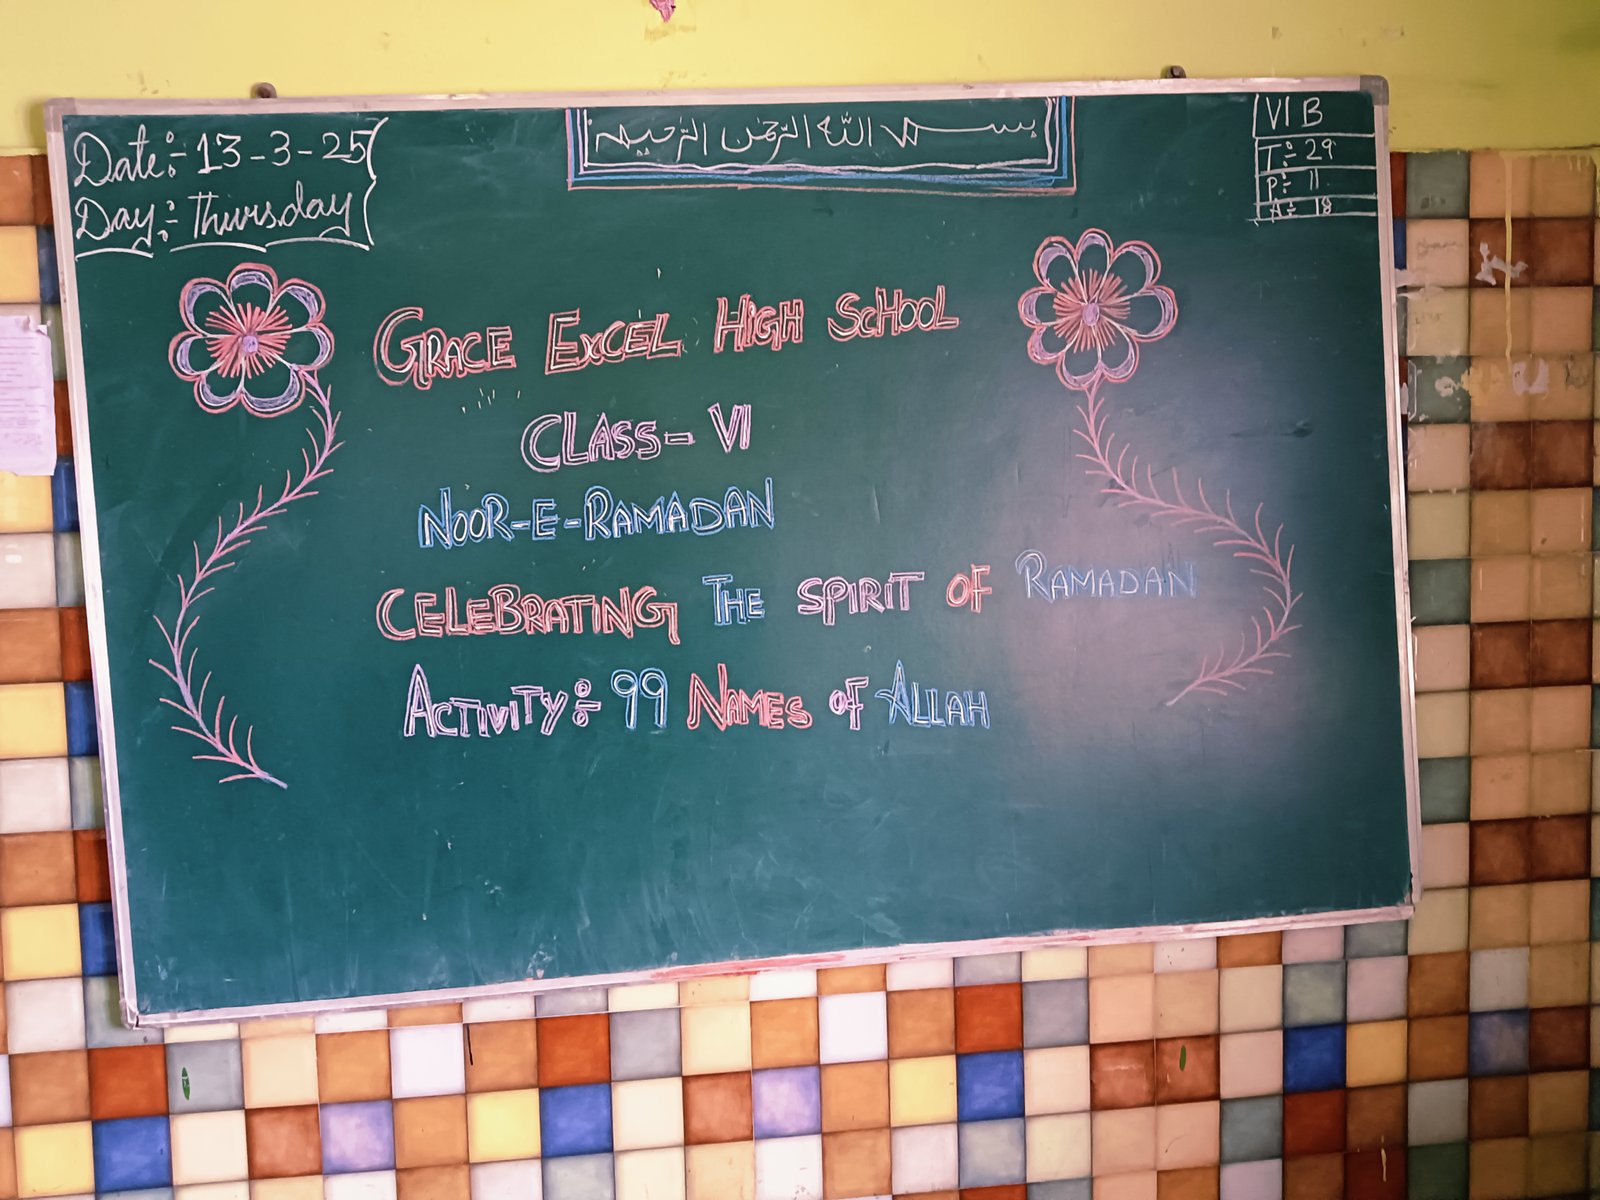 Date:- 13-3-25
Day:- Thursday
بسم الله الرحمن الرحيم
VI B
T:- 29
P:- 11
A:- 18
GRACE EXCEL HIGH SCHOOL
CLASS- VI
NOOR-E-RAMADAN
CELEBRATING THE SPIRIT OF RAMADAN
ACTIVITY:- 99 NAMES OF ALLAH